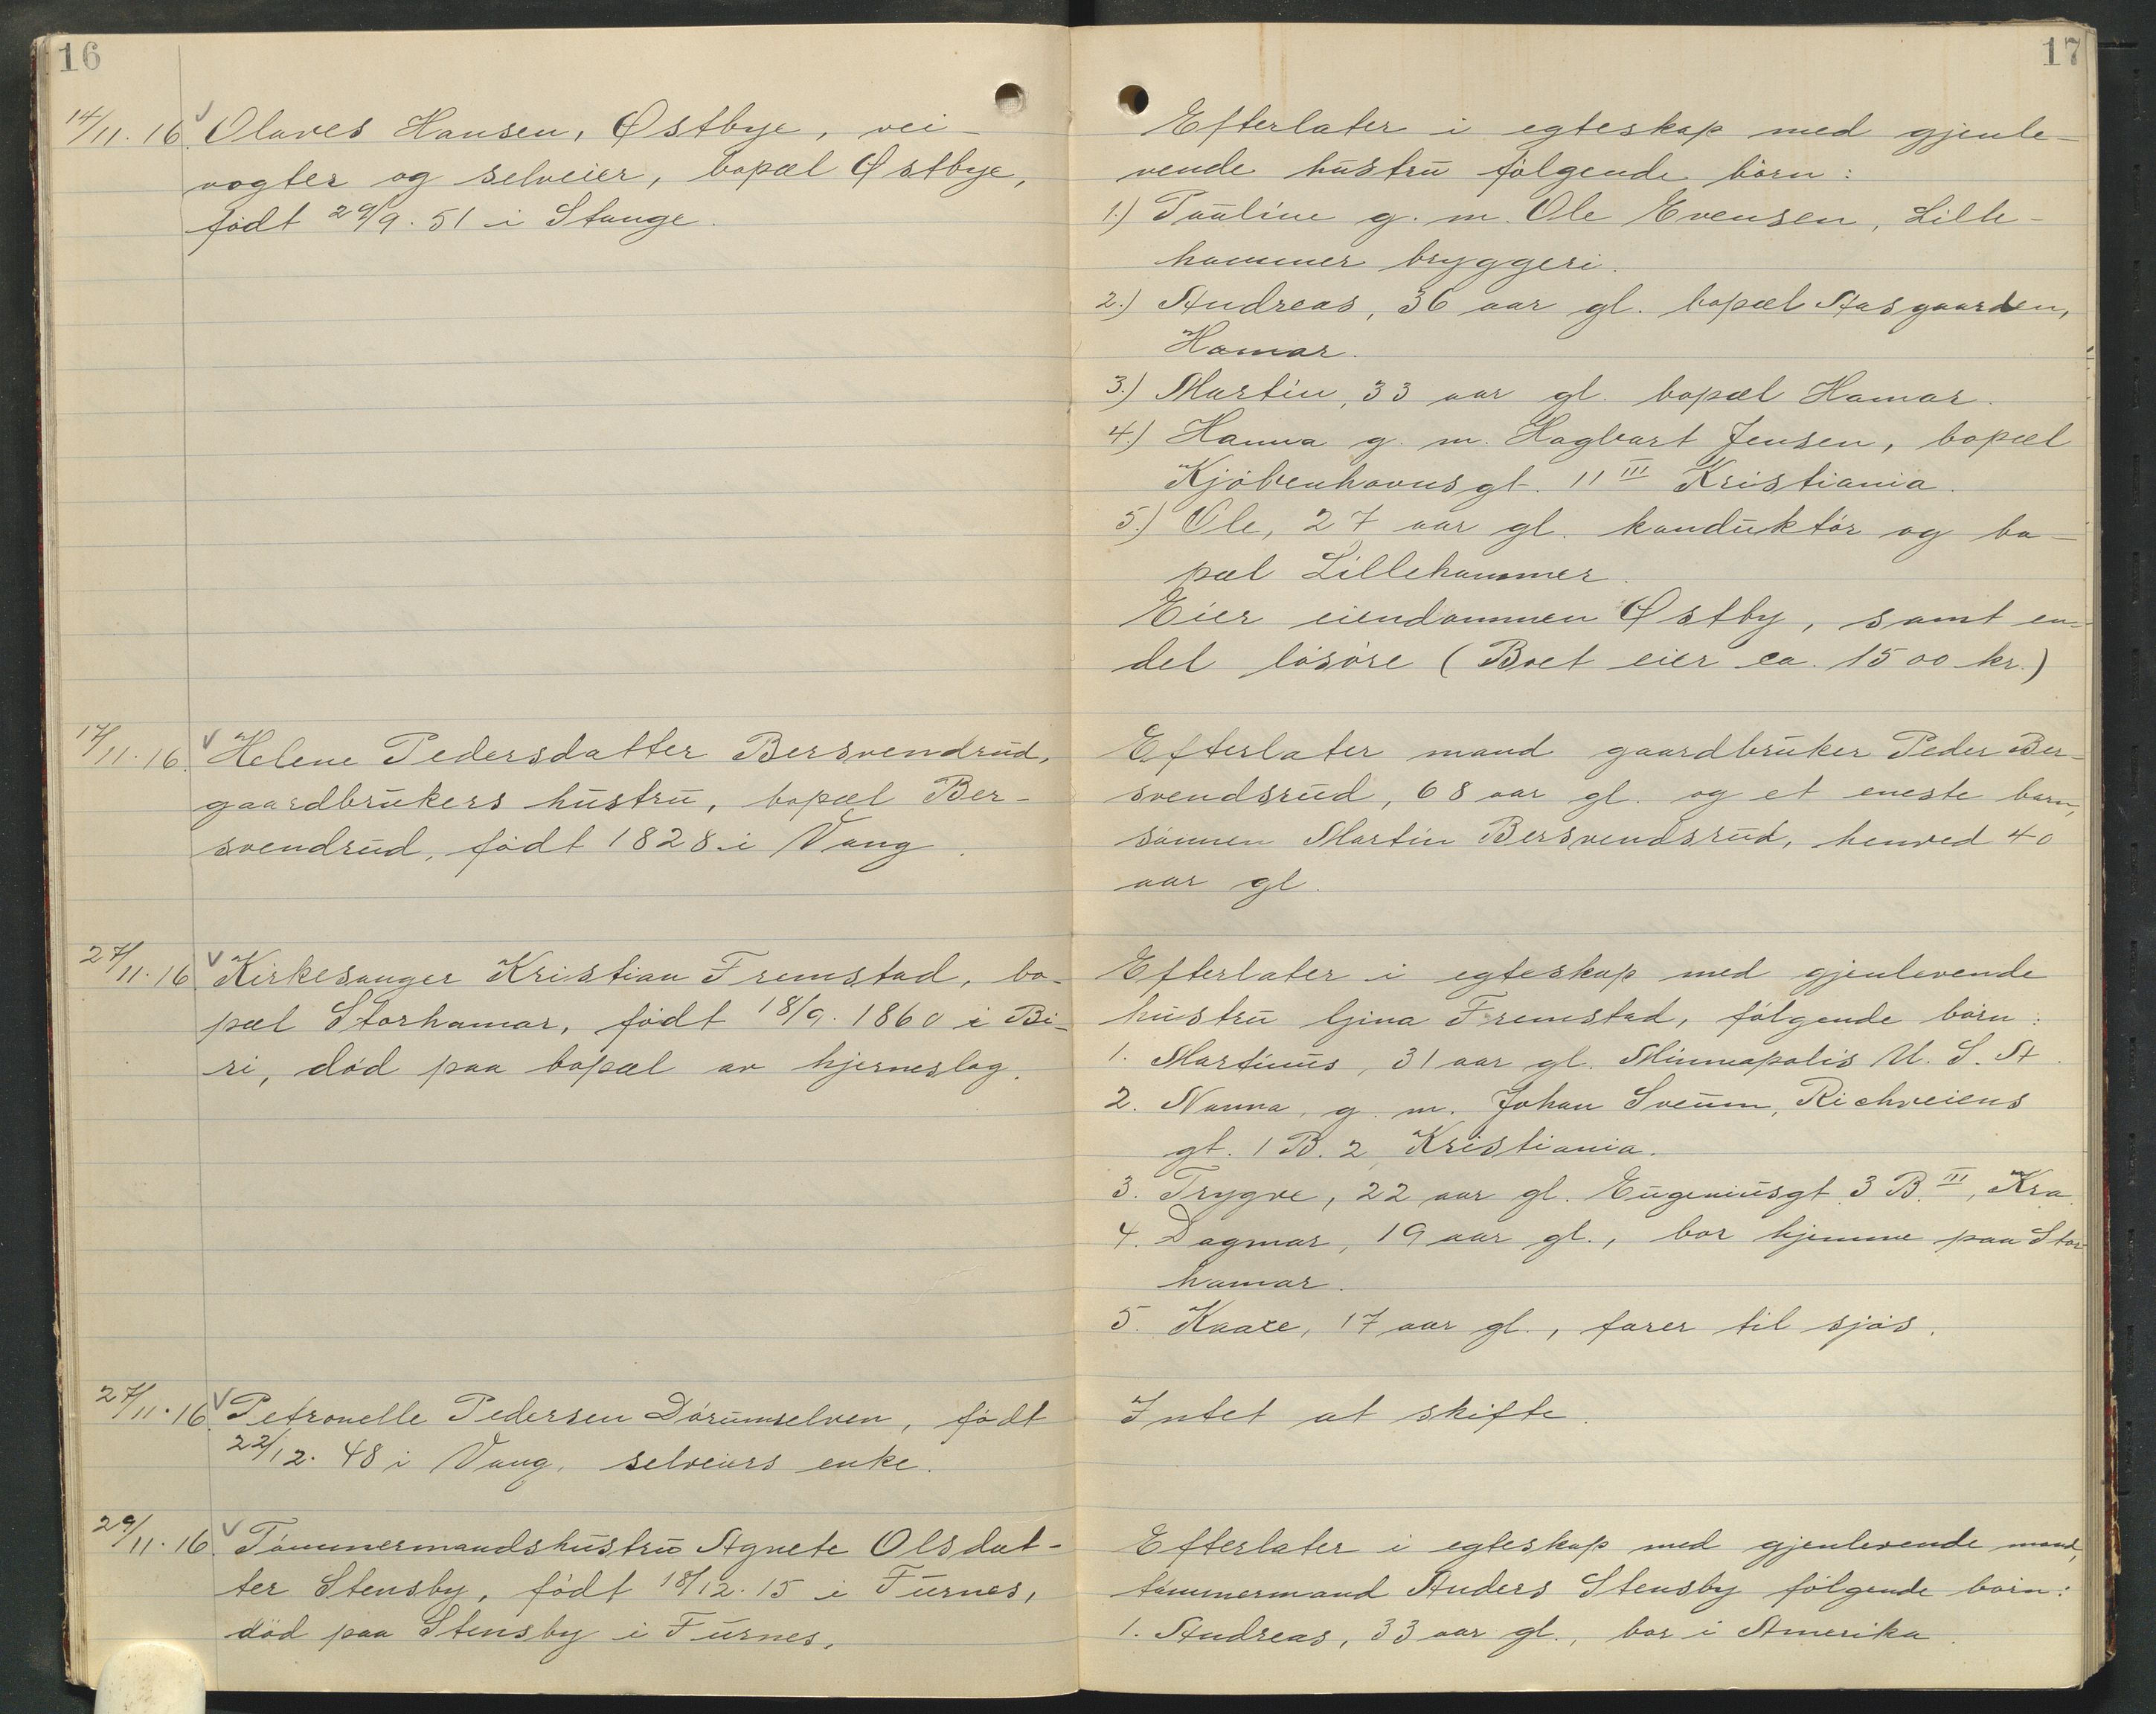 16
14/11.16. Olaves Hansen, Østbye, vei-
vogter og selveier, bopæl Østbye,
født 29/9.51 i Stange.
17/11.16. Helene Pedersdatter Bersvendrud,
gaardbrukers hustru, bopæl Ber-
svendrud, født 1828 i Vang.
27/11.16 Kirkesanger Kristian Fremstad, bo-
pæl Storhamar, født 18/9.1860 i Bi-
ri, død paa bopæl av hjerneslag.
27/11.16. Petronelle Pedersen Dørumselven, født
22/12.48 i Vang, selveiers enke.
29/11.16. Tømmermandshustru Agnete Olsdat-
ter Stensby, født 18/12.15 i Furnes,
død paa Stensby i Furnes.
17
Efterlater i egteskap med gjenle-
vende hustru følgende børn:
1.) Pauline g. m. Ole Evensen, Lille-
hammer bryggeri.
2.) Andreas, 36 aar gl. bopæl Aasgaarden,
Hamar.
3.) Martin, 33 aar gl. bopæl Hamar.
4.) Hanna g. m. Hagbart Jensen, bopæl
Kjøbenhavnsgt. 11 III Kristiania.
5.) Ole, 27 aar gl. konduktør og bo-
pæl Lillehammer.
Eier eiendommen Østby, samt en-
del løsøre (Boet eier ca. 1500 kr.)
Efterlater mand gaardbruker Peder Ber-
svendsrud, 68 aar gl. og et eneste barn,
sønnen Martin Bersvendsrud, henved 40
aar gl.
Efterlater i egteskap med gjenlevende
hustru Gina Fremstad, følgende børn:
1. Martinus, 31 aar gl. Minneapolis U. S. A.
2. Nanna, g. m. Johan Sveum, Richveiens
gt. 1 B. 2, Kristiania.
3. Trygve, 22 aar gl. Eugeniusgt 3 B. III, Kra.
4. Dagmar, 19 aar gl., bor hjemme paa Stor-
hamar.
5. Kaare, 17 aar gl., farer til sjøs.
Intet at skifte.
Efterlater i egteskap med gjenlevende mand,
tømmermand Anders Stensby følgende børn:
1. Andreas, 33 aar gl., bor i Amerika.